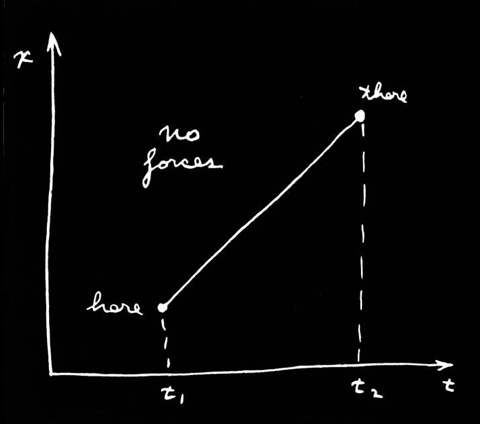 x
there
no
forces
here
t₁
t₂
t